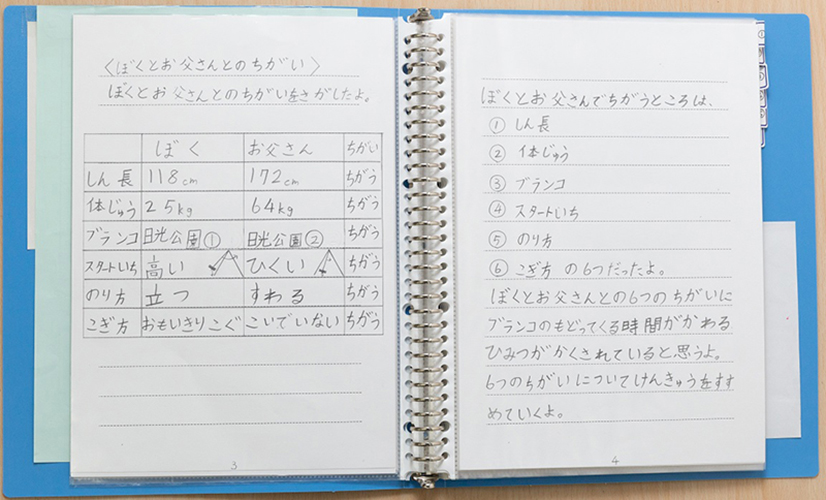 〈ぼくとお父さんとのちがい〉
ぼくとお父さんとのちがいをさがしたよ。
ぼく お父さん ちがい
しん長 118cm 172cm ちがう
体じゅう 25kg 64kg ちがう
ブランコ 日光公園① 日光公園② ちがう
スタートいち 高い ひくい ちがう
のり方 立つ すわる ちがう
こぎ方 おもいきりこぐ こいでいない ちがう
3
ぼくとお父さんでちがうところは、
① しん長
② 体じゅう
③ ブランコ
④ スタートいち
⑤ のり方
⑥ こぎ方 の6つだったよ。
ぼくとお父さんとの6つのちがいに
ブランコのもどってくる時間がかわる
ひみつがかくされていると思うよ。
6つのちがいについてけんきゅうをすす
めていくよ。
4